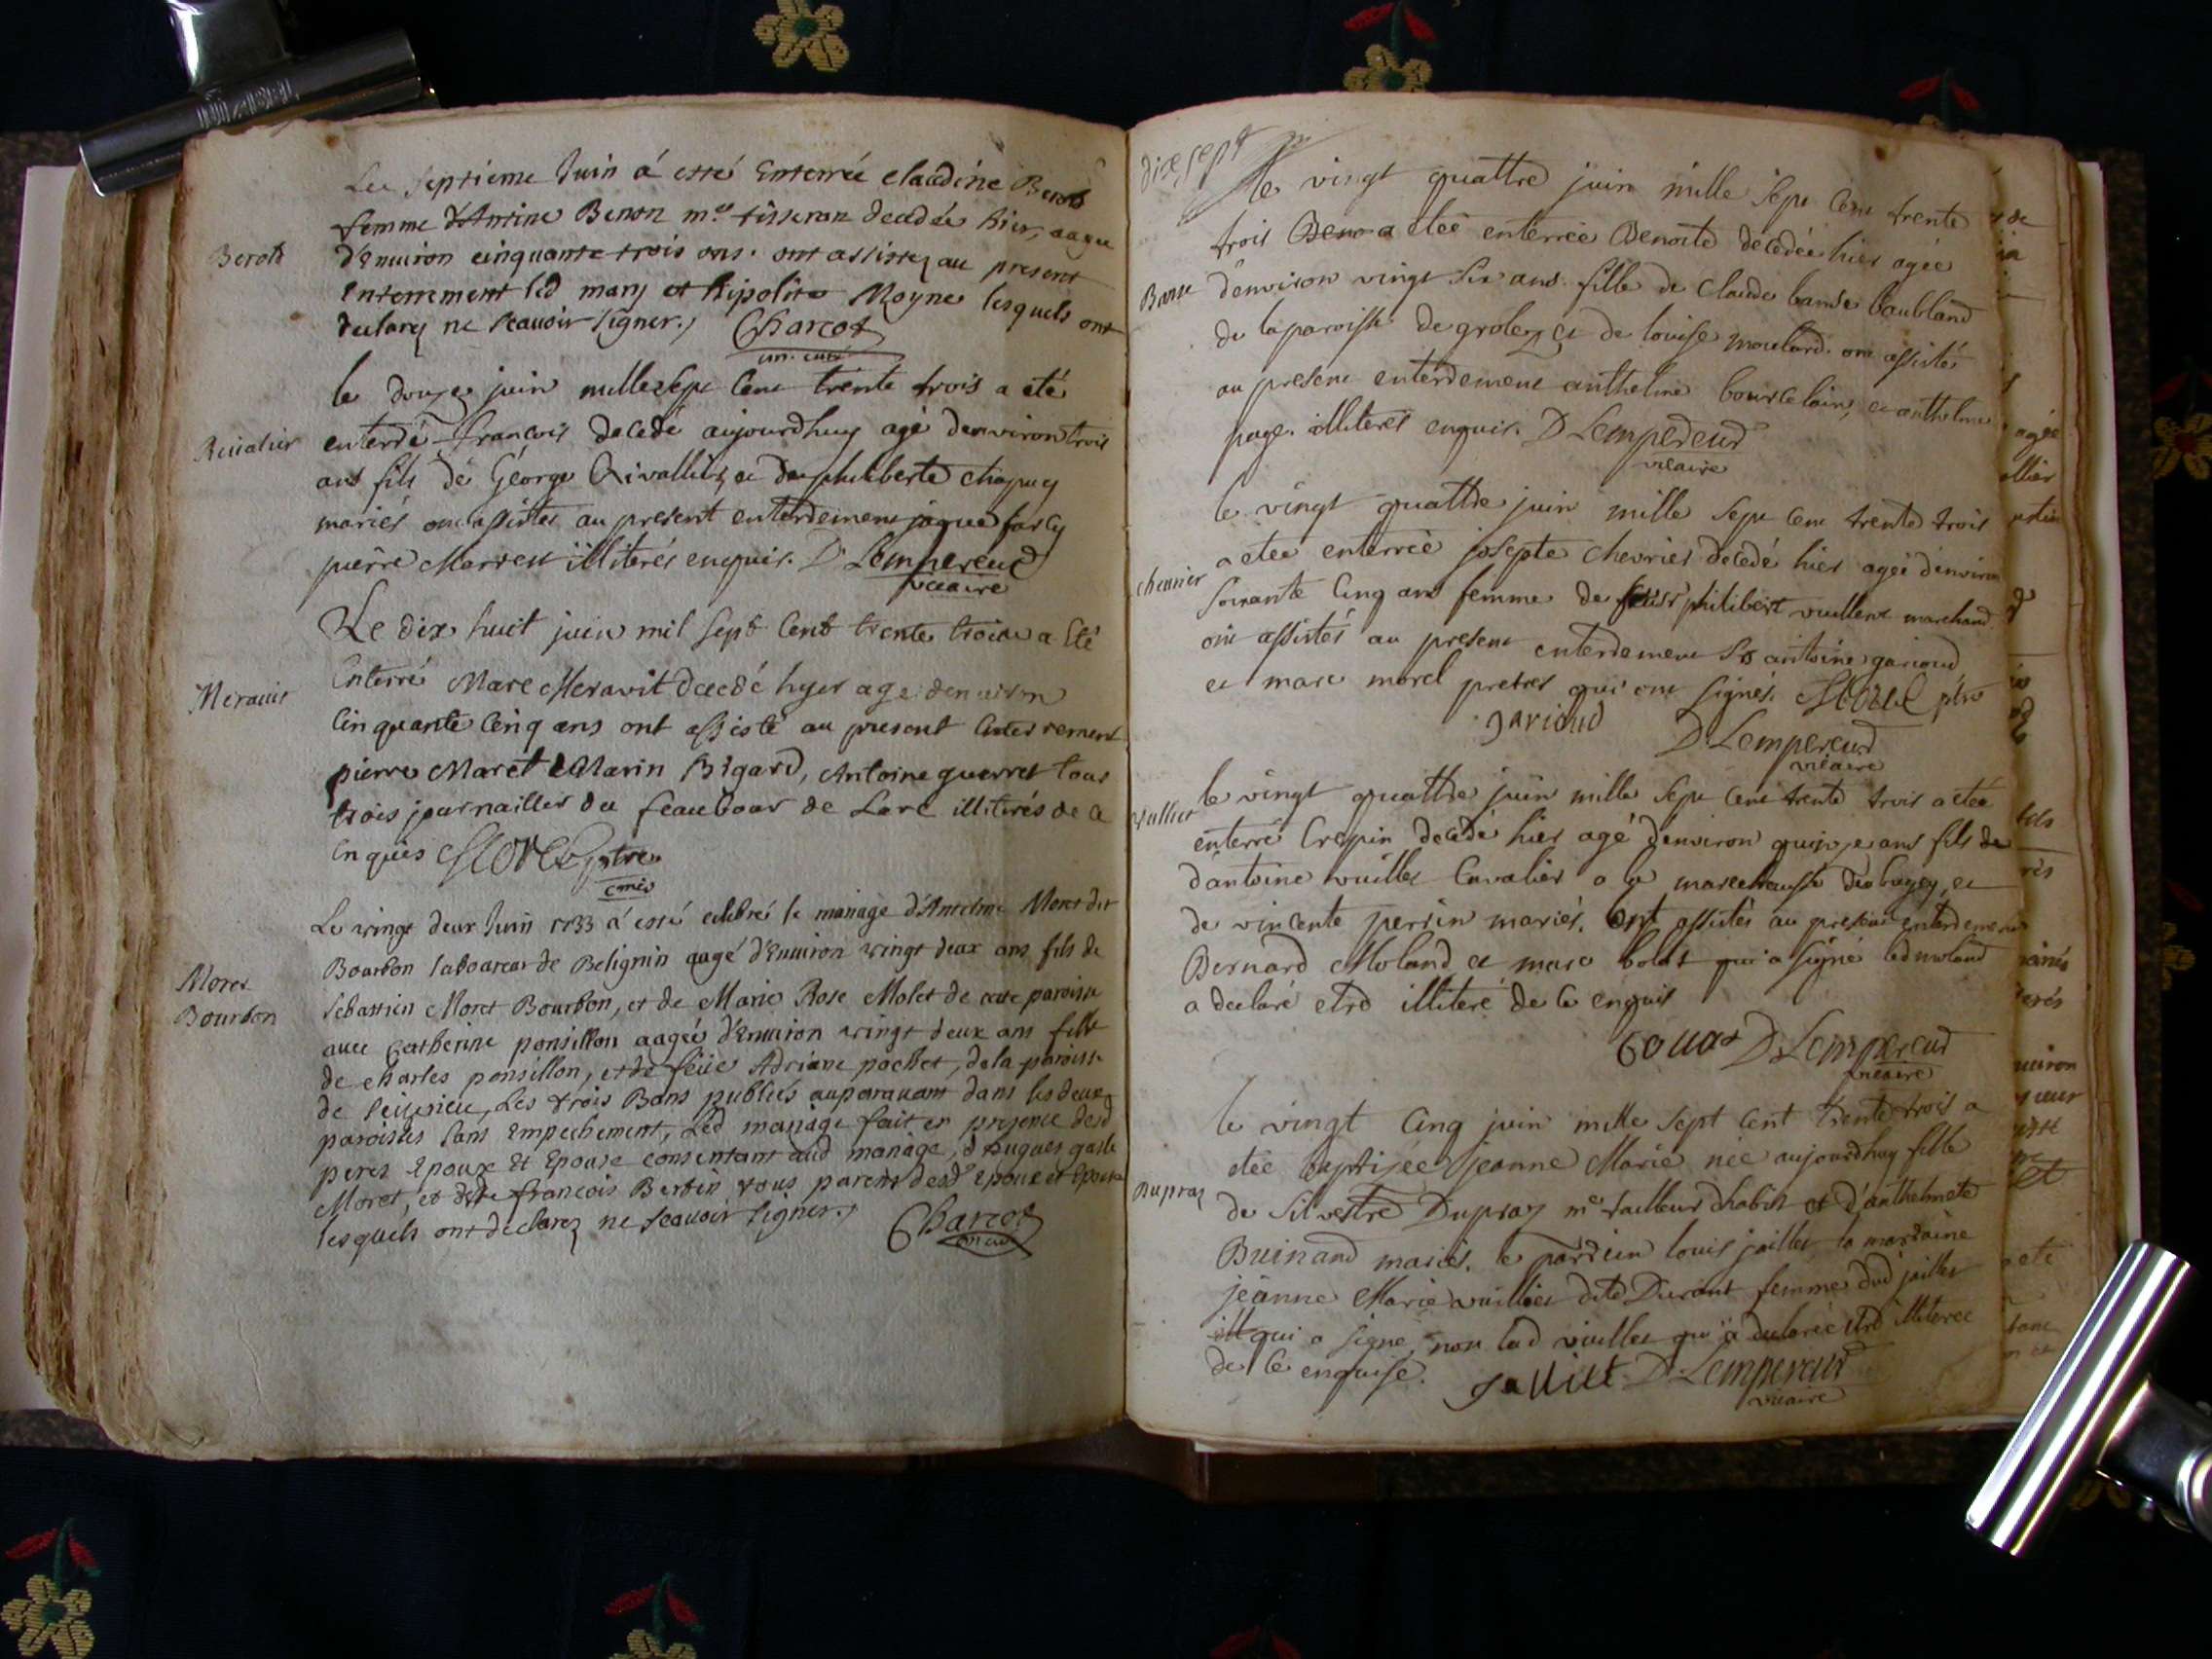 Le septieme Juin á esté Enterrée claudine Berod
femme d'Antoine Benon m.e tisseran decedée hier, aagee
Berod
d'Enuiron cinquante trois ans. ont assistez au present
Enterrement led mary et hipolite Moyne lesquels ont
declarez ne scauoir signer. Charcot
un. curé
le douze juin mille sept cent trente trois a eté
enterdé francois decedé aujourdhuy agé denviron trois
ans fils de George Rivallier, et de philiberte chapuy
mariés ont assistés au present enterdement jaque
pierre illiterés enquis. D Lempereur
vicaire
Le dix huit juin mil sept cent trente trois a Eté
Enterré Marc Meravit decedé hyer age denuiron
cinquante cinq ans ont assisté au present enterrement
pierre Maret Marin Bigard, Antoine guerret tous
trois journaillier du feaubour de Larc illiterés de ce
enquis Morel ptre
Le vingt deux Juin 1733 á esté celebré le mariage d'Antelme Moret dit
Bourbon laboureur de Belignin aagé d'Enuiron vingt deux ans fils de
Moret
Bourbon
sebastien Moret Bourbon, et de Marie Rose Molet de cette paroisse
auec Catherine ponsillon aagée d'Enuiron vingt deux ans fille
de charles ponsillon, et de feüe Adriane pochet, de la paroisse
de Les trois Bans publiés auparauant dans les deux
paroisses sans Empechement, Led mariage fait en presence desd
peres Epoux Et Epouse consentant aud mariage, d'hugues
Moret, et de francois Bertin tous parents desd Epoux et Epouse
lesquels ont declarez ne scauoir signer. Charcot
dix sept
le vingt quattre juin mille sept cent trente
trois a etée enterrée Benoite decedée hier agée
Barse
d'environ vingt six ans fille de Claude barse baubland
de la paroisse de grolez et de louise moulard. ont assistés
au present enterdement anthelme bourcelain, et anthelme
page. illiterés enquis. D Lempereur
vicaire
le vingt quattre juin mille sept cent trente trois
a etée enterrée josepte chevrier decedé hier agée d'environ
chevrier
soixante cinq ans femme de philibert vuillent marchand
ont assistés au present enterdement Sr antoine garioud
et marc morel pretres qui ont signés. Morel ptre
garioud D Lempereur
vicaire
le vingt quattre juin mille sept cent trente trois a etée
enterré Crepin decedé hier agé d'environ quinze ans fils de
d'antoine vuillet Cavalier a la marechaussé du bugey, et
de vincente perrin mariés. Ont assistés au present enterdement
Bernard Moland et marc qui a signé led moland
a declaré etre illiteré de ce enquis
D Lempereur
vicaire
le vingt cinq juin mille sept cent trente trois a
etée baptisée jeanne Marie née aujourdhuy fille
Dupraz
de Silvestre Dupraz m.e tailleur dhabit et d'anthelmete
Buinand mariés. le pardin louis jaillet la mardaine
jeanne Marie vuillet dite Durant femme dud jaillet
qui a signé, non lad vuillet qui a declarée etre illiterée
de ce enquise. Jallliet D Lempereur
vicaire